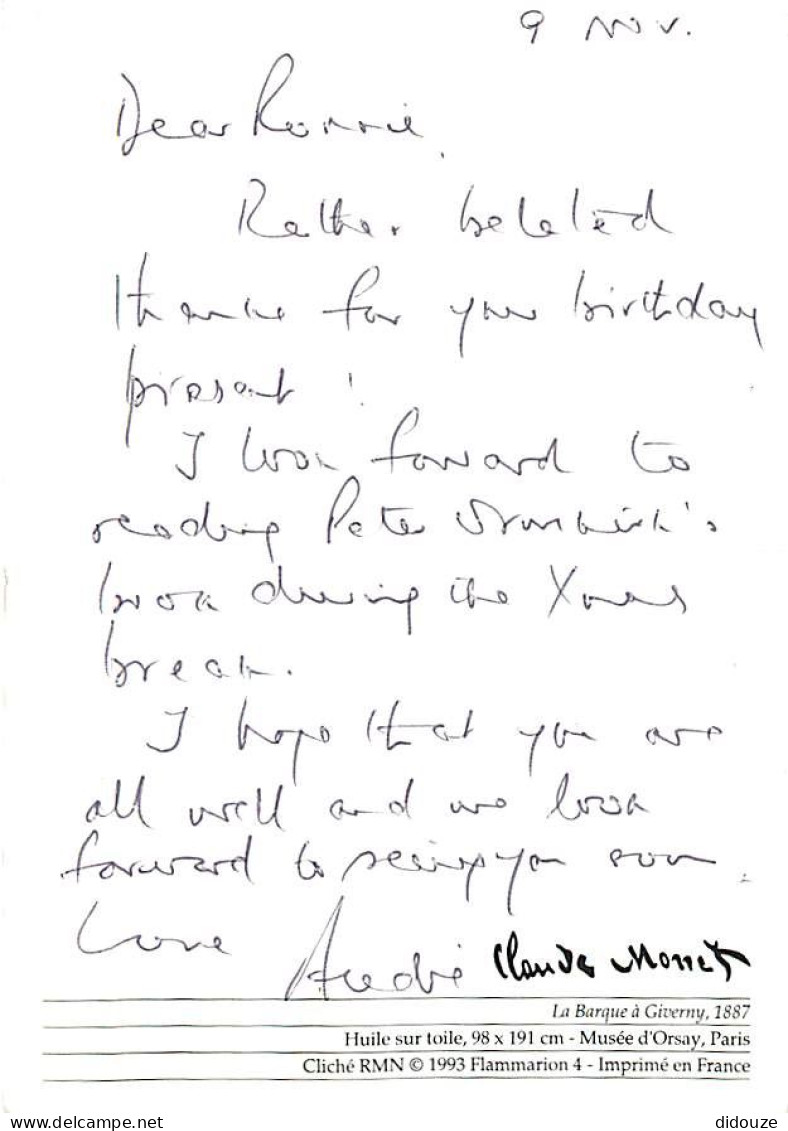 9 Nov.
Dear Ronnie,
Rather belated
thanks for your birthday
present!
I look forward to
reading Peter 's
book during the Xmas
break.
I hope that you are
all well and we look
forward to seeing you soon.
Love
Claude Monet
La Barque à Giverny, 1887
Huile sur toile, 98 x 191 cm - Musée d'Orsay, Paris
Cliché RMN © 1993 Flammarion 4 - Imprimé en France
delcampe.net
didouze